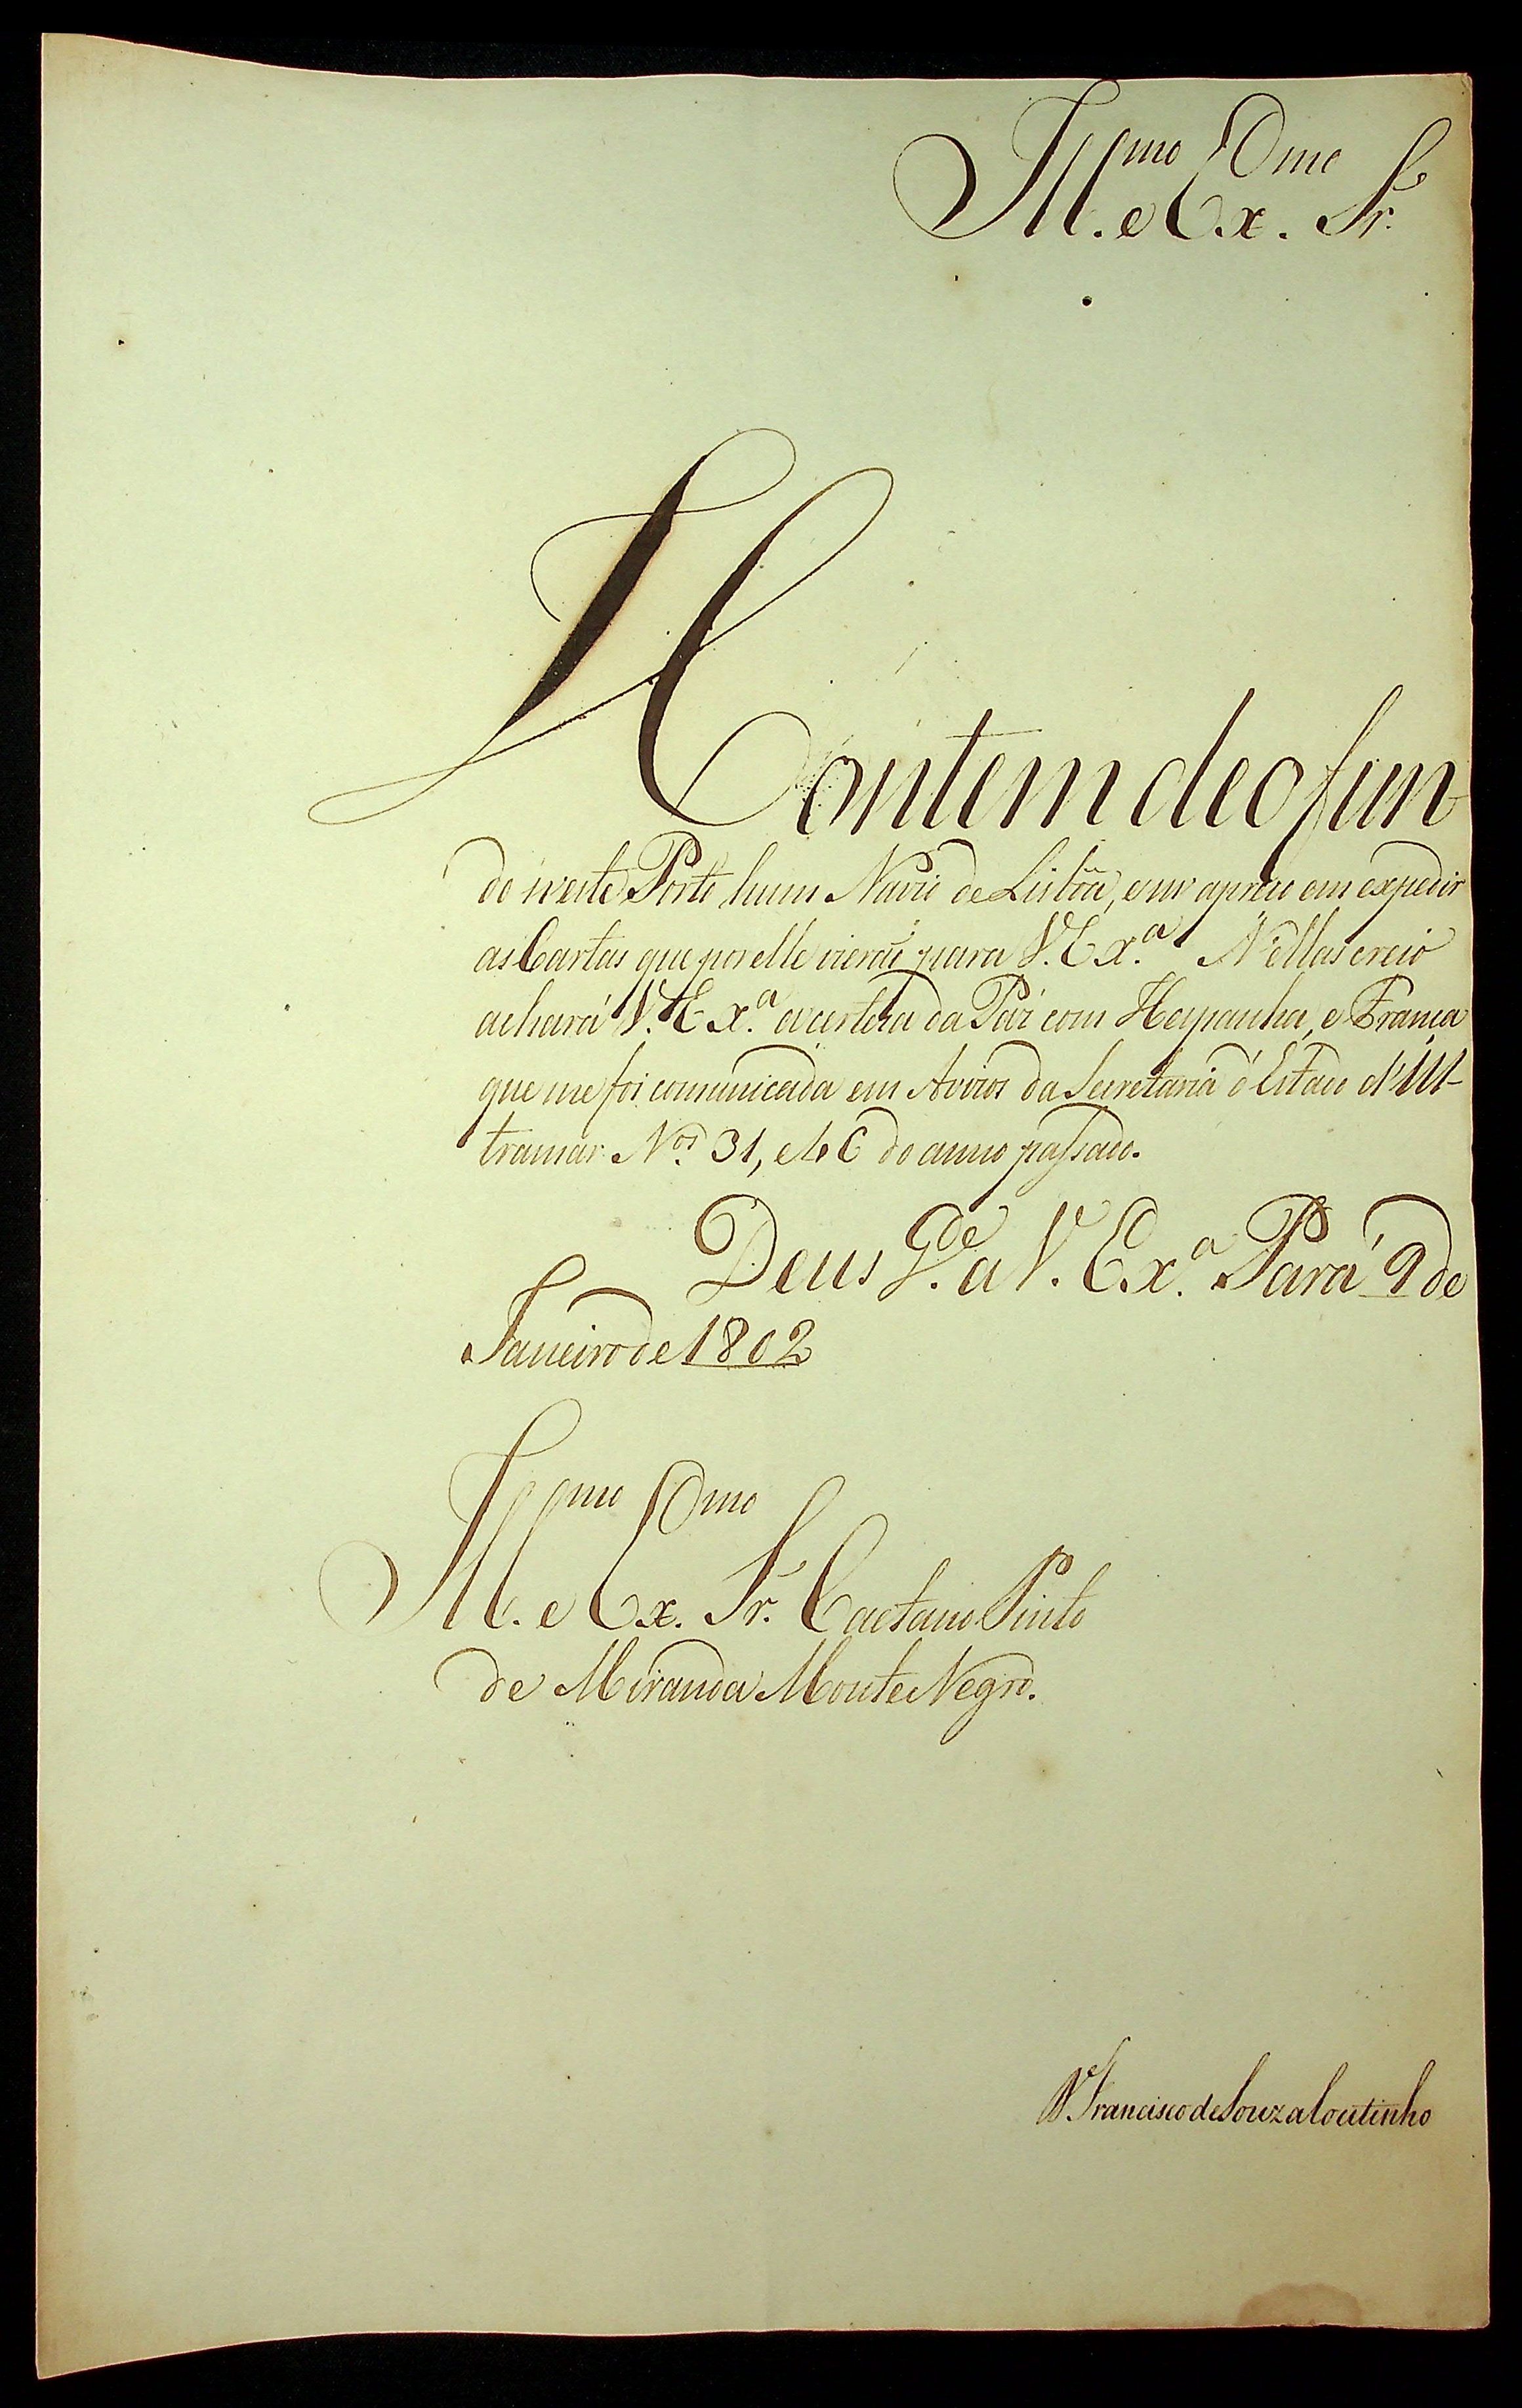 Ill.mo e Ex.mo Sr.
Hontem deo fun-
do n'este Porto hum Navio de Lisboa, e me apréso em expedir
as Cartas que por elle vieraõ para V. Ex.a N'ellas creio
achará V. Ex.a a certeza da Paz com Hespanha, e França
que me foi comunicada em Avizos da Secretaria d'Estado d'Ul-
tramar N.os 31, e do anno passado.
Deus G.de a V. Ex.a Pará 9 de
Janeiro de 1802
Ill.mo e Ex.mo Sr. Caetano Pinto
de Miranda Monte Negro.
D. Francisco de Souza Coutinho